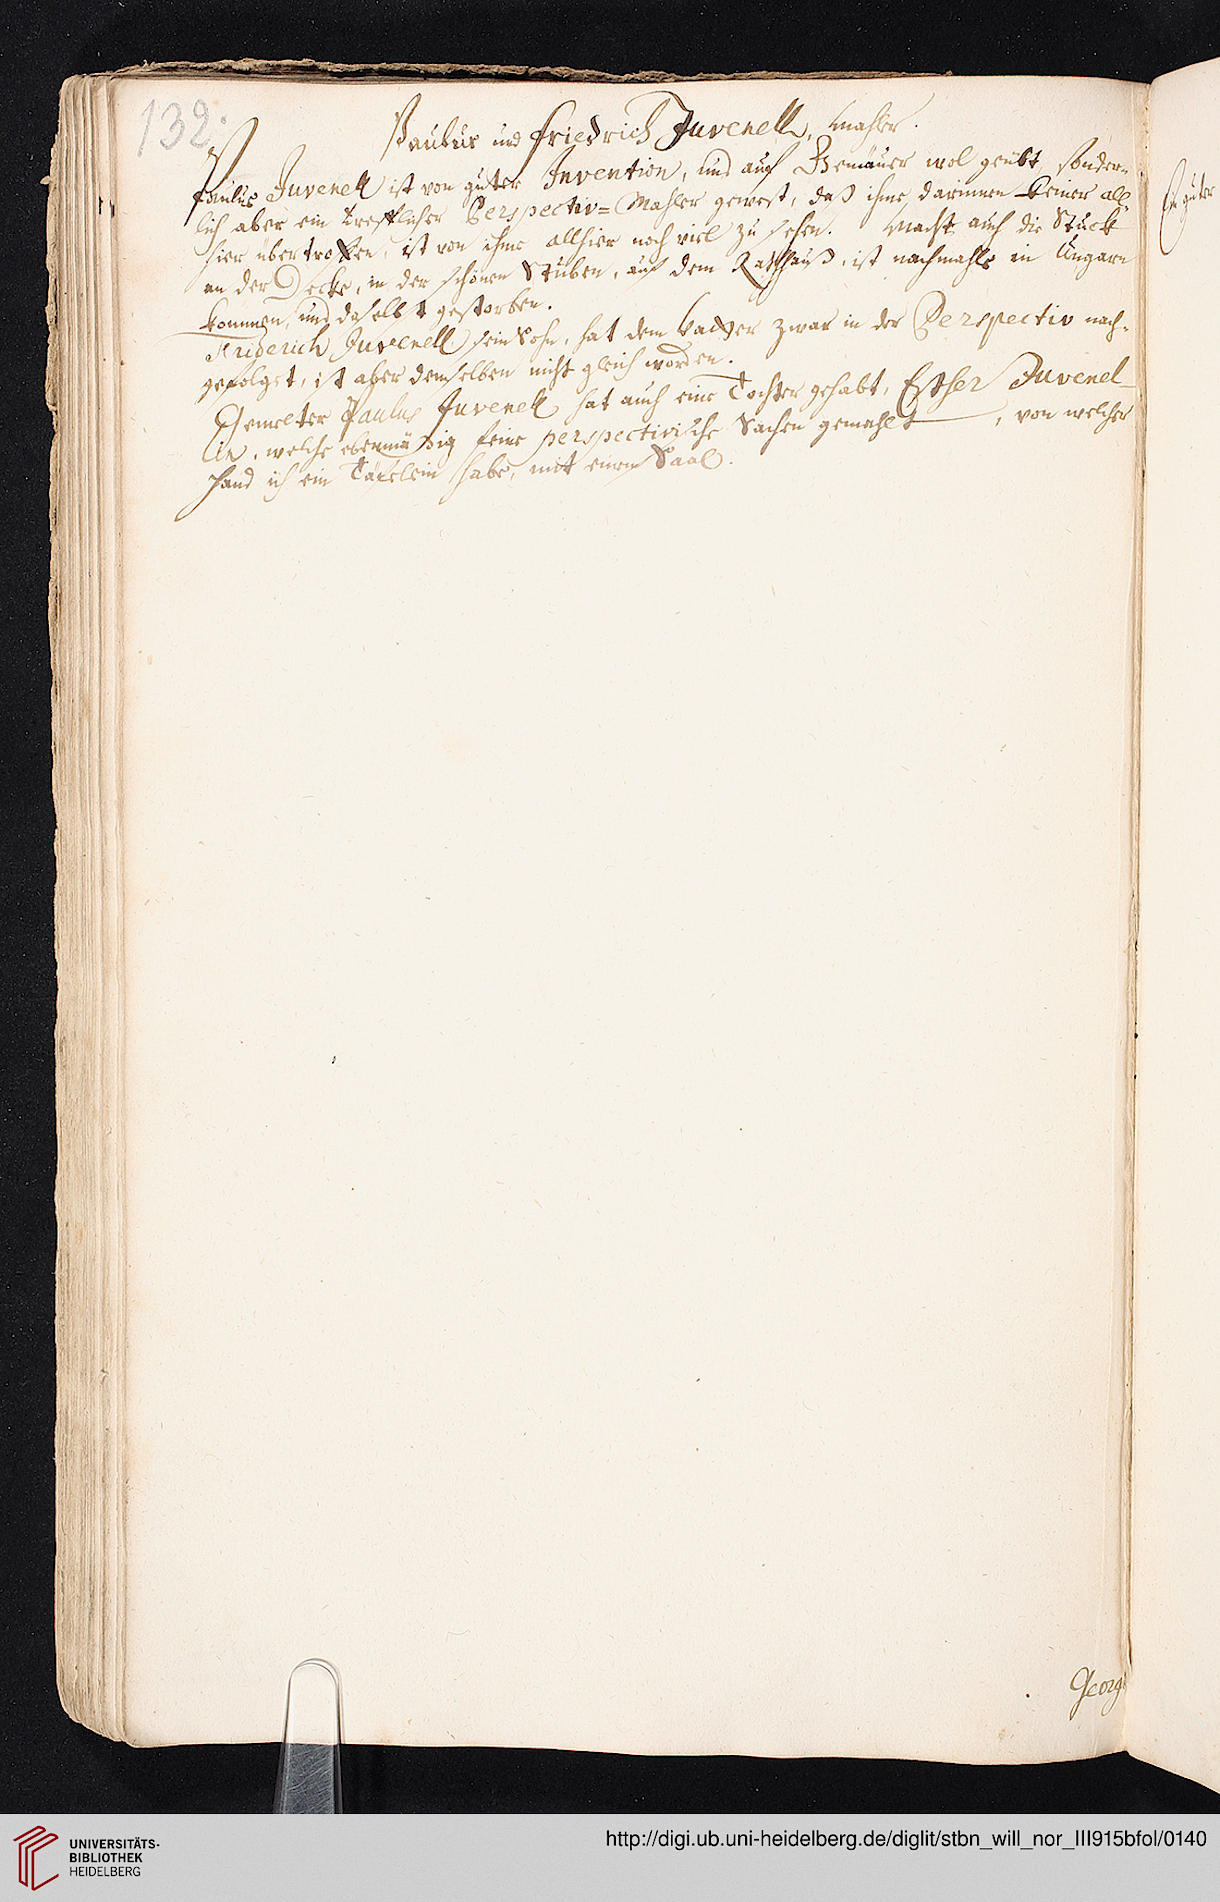 132.
Paulus und Friedrich Juvenell, Mahler.
Paulus Juvenell ist von guter Invention, und auf Gemäuer wol geübt, sonder-
lich aber ein trefflicher Perspectiv=Mahler gewest, daß ihme darinnen keiner all-
hier übertroffen, ist von ihme allhier noch viel zu sehen. Macht auch die Stuck
an der Decke, in der schönen Stuben, auf dem Rathhauß, ist nachmahls in Ungarn
kommen, und daselbst gestorben.
Friderich Juvenell sein Sohn, hat dem Vatter zwar in der Perspectiv nach-
gefolget, ist aber demselben nicht gleich worden.
Gemelter Paulus Juvenell hat auch eine Tochter gehabt, Esther Juvenel-
lin, welche ebenmäßig feine perspectivische Sachen gemahlt, von welcher
Hand ich ein Täfelein habe, mit einem Saal.
Ein guter
Georg
UNIVERSITÄTS-
BIBLIOTHEK
HEIDELBERG
http://digi.ub.uni-heidelberg.de/diglit/stbn_will_nor_III915bfol/0140